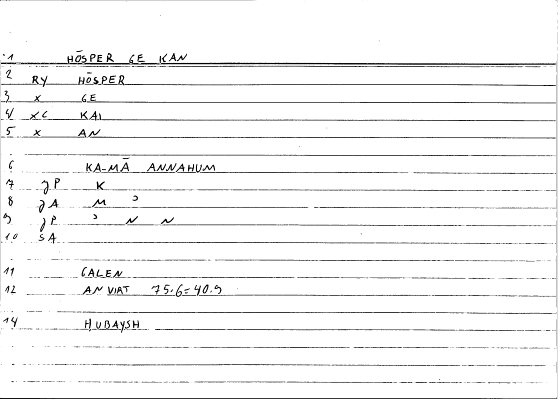 1 HŌSPER GE KAN
2 RY HŌSPER
3 x GE
4 xc KAI
5 x AN
6 KA-MĀ ANNAHUM
7 JP K
8 JA M ʾ
9 JP ʾ N N
10 SA
11 GALEN
12 AN VIRT 75.6=40.9
14 HUBAYSH